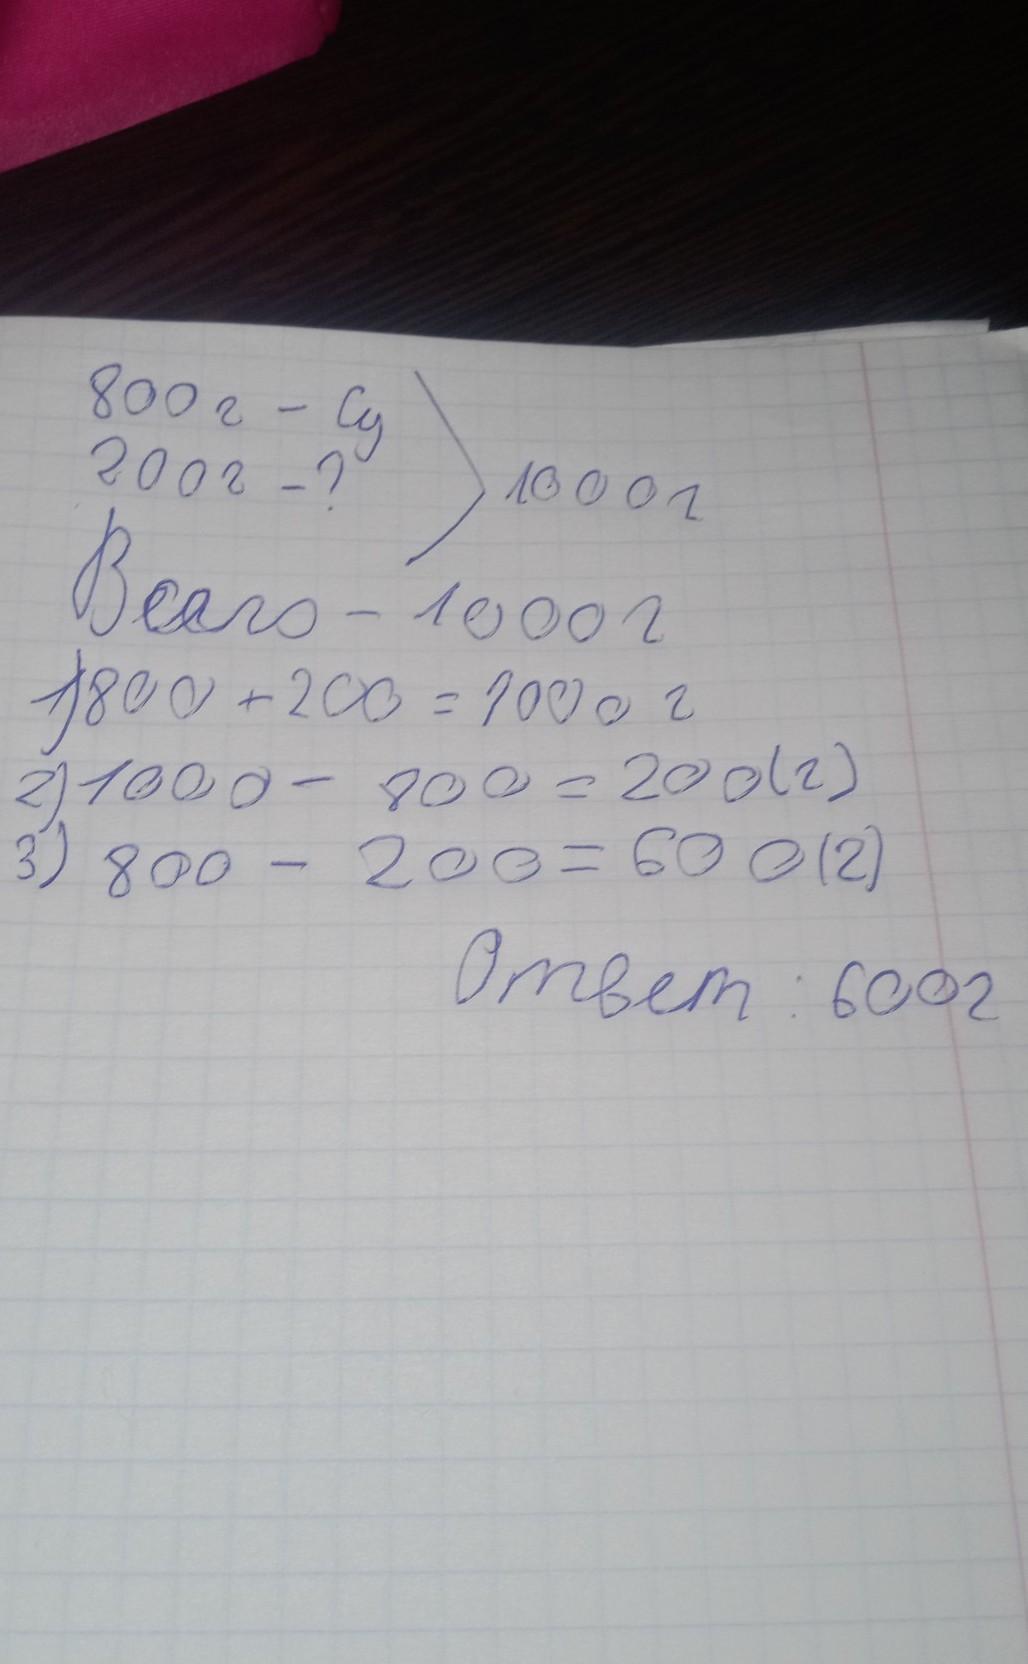 800г - Су
200г - ?
1000г
Всего - 1000г
1) 800 + 200 = 1000 г
2) 1000 - 800 = 200 (г)
3) 800 - 200 = 600 (г)
Ответ : 600г